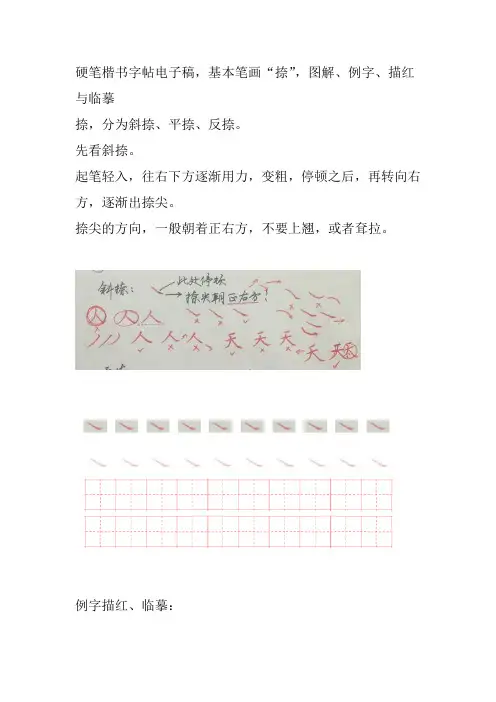 硬笔楷书字帖电子稿，基本笔画“捺”，图解、例字、描红
与临摹
捺，分为斜捺、平捺、反捺。
先看斜捺。
起笔轻入，往右下方逐渐用力，变粗，停顿之后，再转向右
方，逐渐出捺尖。
捺尖的方向，一般朝着正右方，不要上翘，或者耷拉。
斜捺：
此处停顿
捺尖朝正右方！
人 人 人
人 人 人 天 天 天 天 天 天
例字描红、临摹：